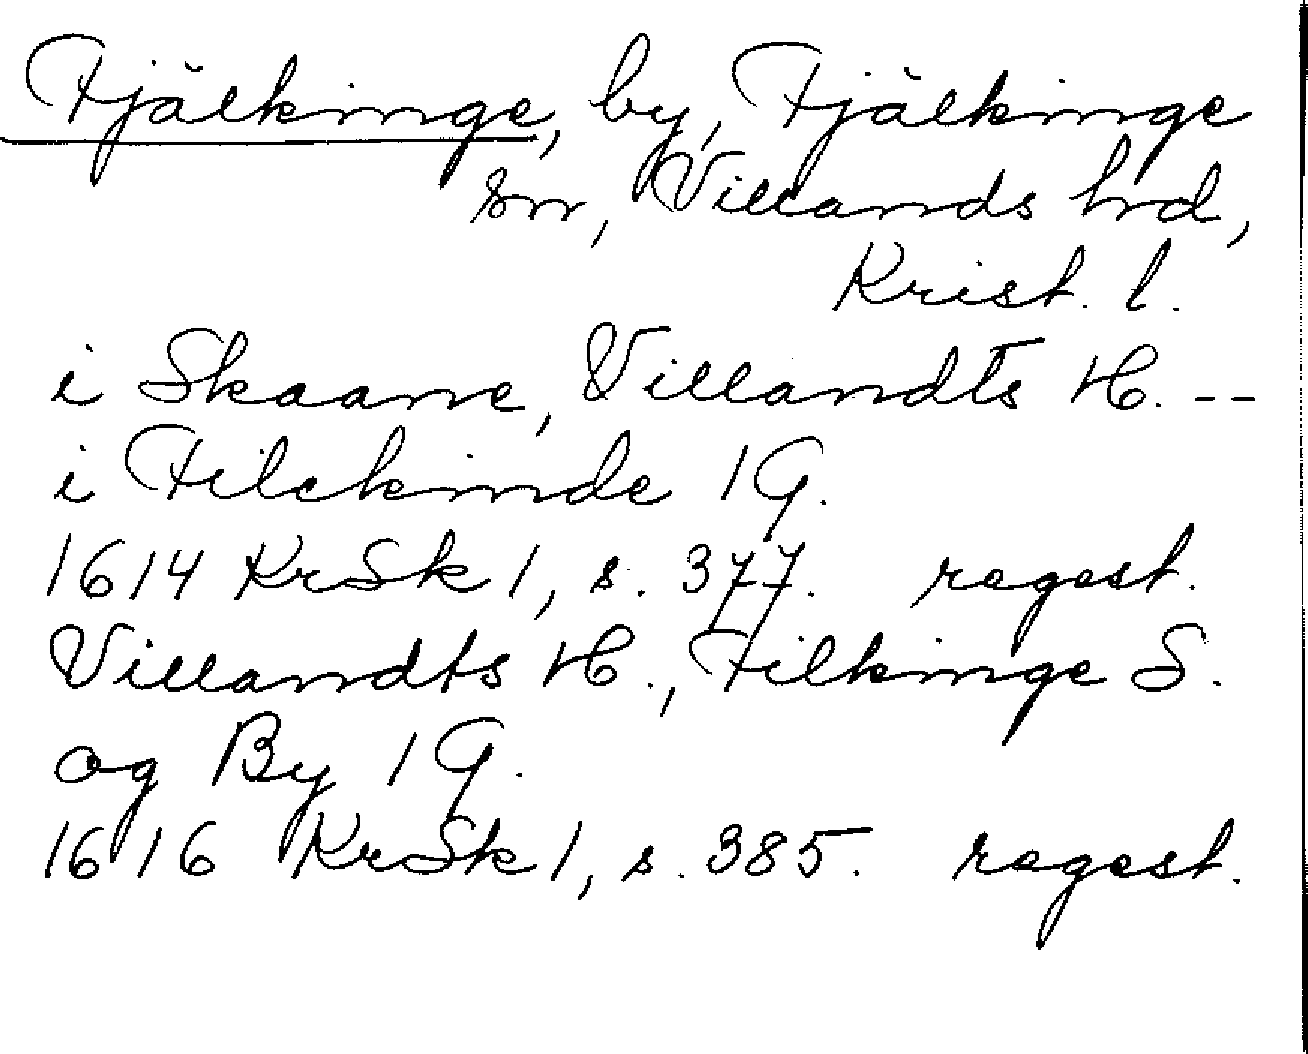 Fjälkinge, by, Fjälkinge
sn, Villands hrd,
Krist. l.
i Skaane, Villandts H. --
i Filckinde 1 G.
1614 KrSk 1, s. 377. regest.
Villandts H., Filkinge S.
og By 1 G.
1616 KrSk 1, s. 385. regest.